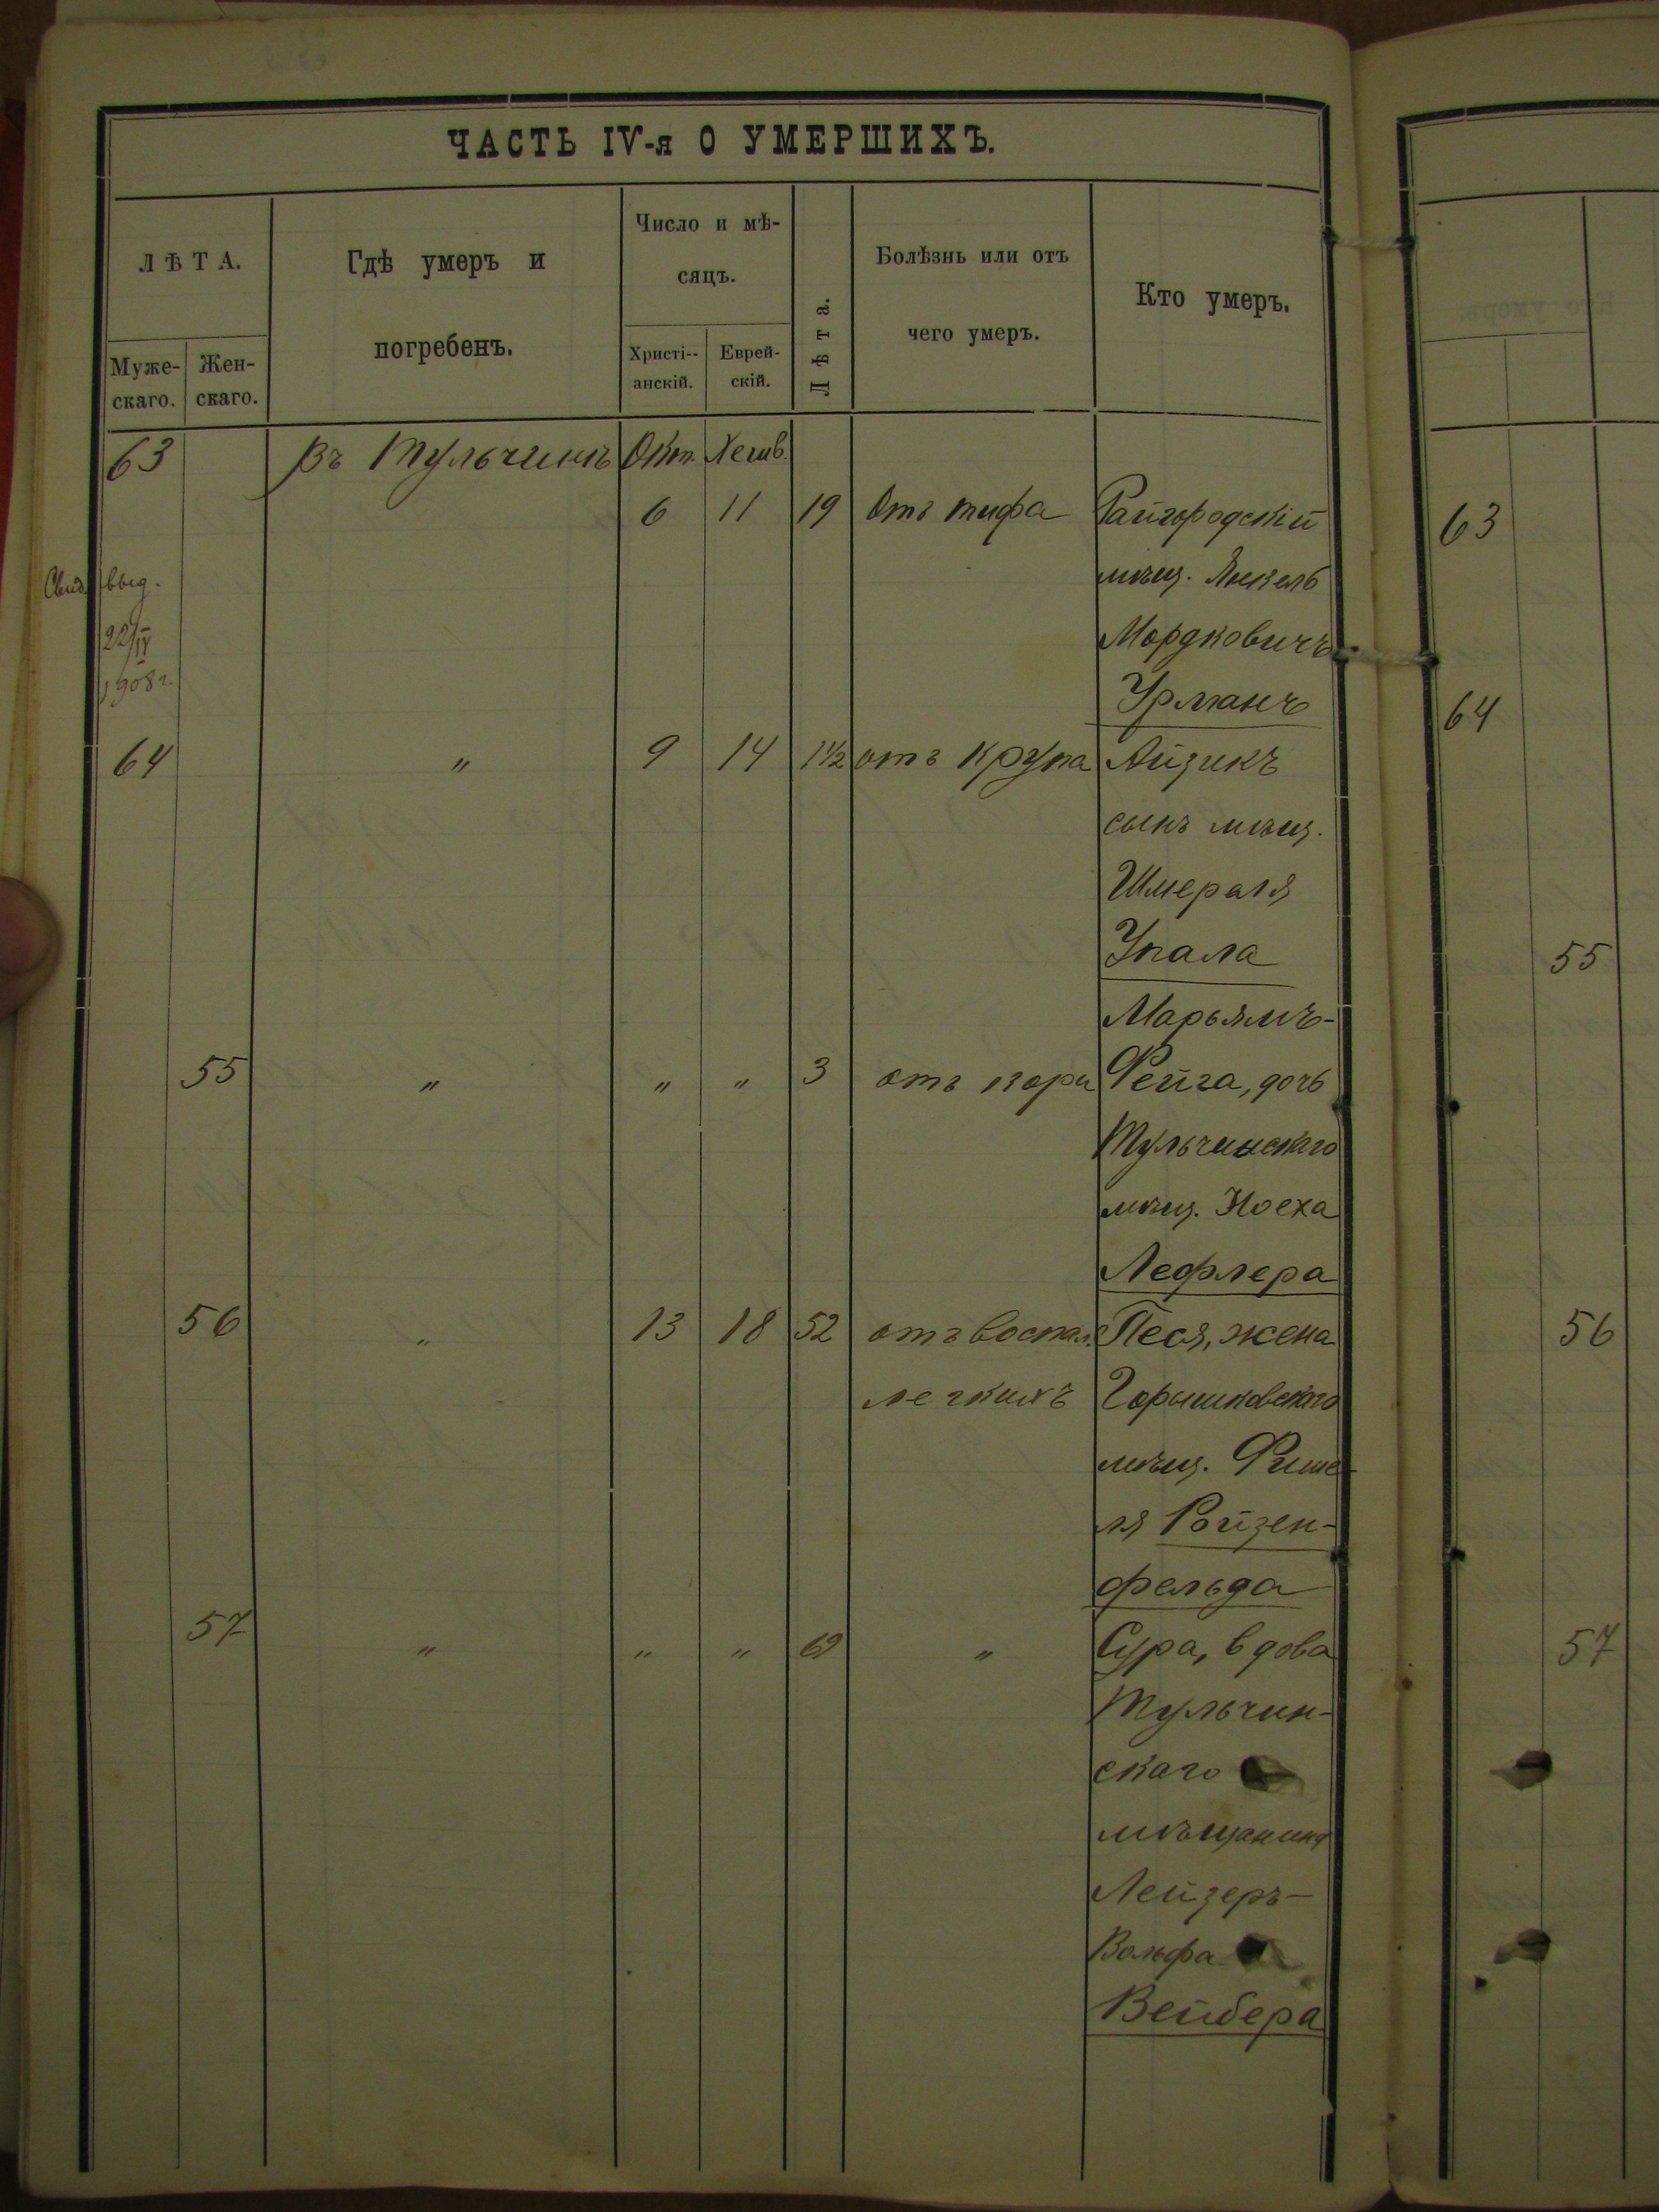 ЧАСТЬ IV-я О УМЕРШИХЪ.
ЛѢТА.
Муже-
скаго.
Жен-
скаго.
Гдѣ умеръ и
погребенъ.
Число и мѣ-
сяцъ.
Христі--
анскій.
Еврей-
скій.
Лѣта.
Болѣзнь или отъ
чего умеръ.
Кто умеръ.
63 Въ Тульчинѣ Окт. Хешв.
6 11 19 Отъ тифа Райгородскій
Свид. выд. мѣщ. Янкель
22/IV Мордковичъ
1908 г. Урманъ
64 " 9 14 1½ отъ крупа Айзикъ
сынъ мѣщ.
Шмераля
Упала
Марьямъ-
55 " " " 3 отъ кори Фейга, дочь
Тульчинскаго
мѣщ. Ноеха
Лефлера
56 " 13 18 52 отъ воспал. Песя, жена
легкихъ Горышковскаго
мѣщ. Фише-
ля Ройзен-
фельда
57 " " " "  Сура, вдова
Тульчин-
скаго
мѣщанина
Лейзеръ-
Вольфа
Вейбера
63
64
55
56
57